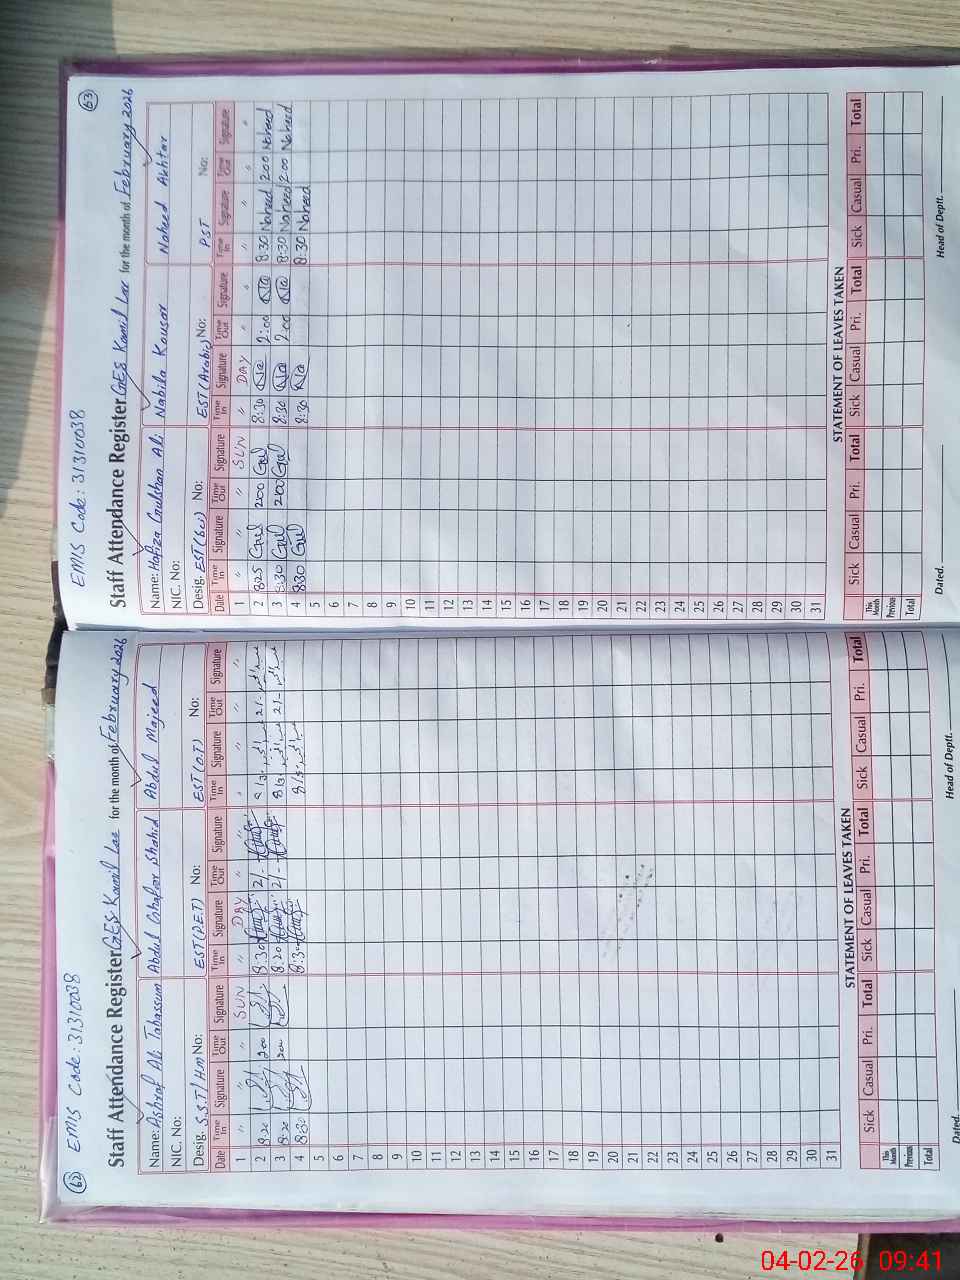 62 EMIS Code: 31310038
Staff Attendance Register GES Kamil Lar for the month of February 2026
Name: Ashraf Ali Tabassum Abdul Ghafar Shahid Abdul Majeed
NIC. No:
Desig. S.S.T/Hm No: EST(P.E.T) No: EST(O.T) No:
Date Time In Signature Time Out Signature Time In Signature Time Out Signature Time In Signature Time Out Signature
1 " " " SUN " DAY " " " " " "
2 8:20 200 8:30 2/-
3 8:20 200 8:20 2/-
4 8:30
5
6
7
8
9
10
11
12
13
14
15
16
17
18
19
20
21
22
23
24
25
26
27
28
29
30
31
STATEMENT OF LEAVES TAKEN
Sick Casual Pri. Total Sick Casual Pri. Total Sick Casual Pri. Total
This Month
Previous
Total
Dated. Head of Deptt.
63
EMIS Code: 31310038
Staff Attendance Register GES Kamil Lar for the month of February 2026
Name: Hafiza Gulshan Ali Nabila Kousar Naheed Akhtar
NIC. No:
Desig. EST(Sci) No: EST(Arabic) No: PST No:
Date Time In Signature Time Out Signature Time In Signature Time Out Signature Time In Signature Time Out Signature
1 " " " SUN " DAY " " " " " "
2 825 Gul 200 Gul 8:30 Na 2:00 Na 8:30 Naheed 200 Naheed
3 8:30 Gul 200 Gul 8:30 Na 2:00 Na 8:30 Naheed 200 Naheed
4 830 Gul 8:30 Na 8:30 Naheed
5
6
7
8
9
10
11
12
13
14
15
16
17
18
19
20
21
22
23
24
25
26
27
28
29
30
31
STATEMENT OF LEAVES TAKEN
Sick Casual Pri. Total Sick Casual Pri. Total Sick Casual Pri. Total
This Month
Previous
Total
Dated. Head of Deptt.
04-02-26 09:41